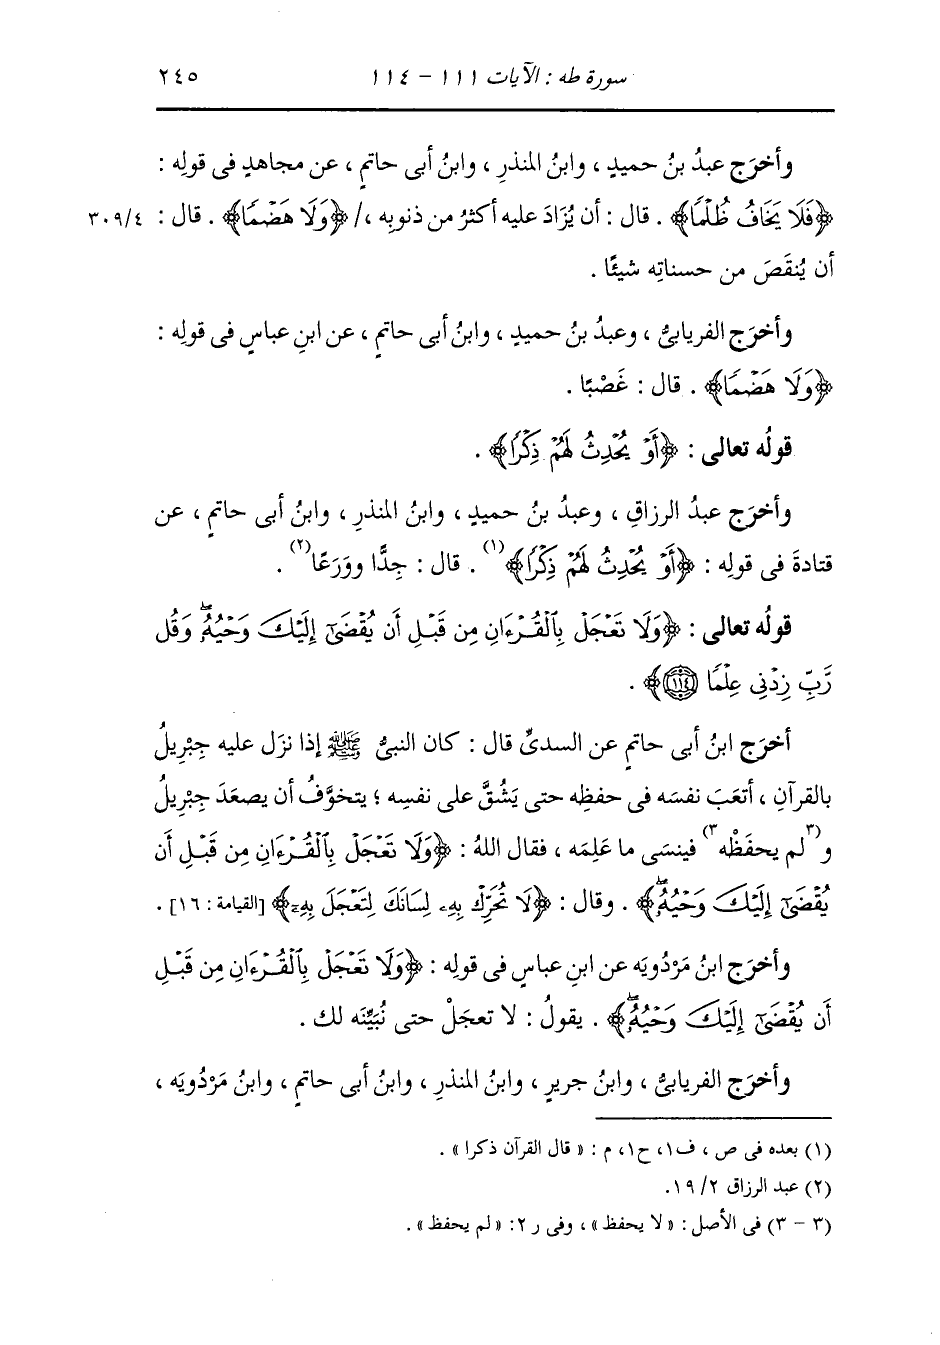 سورة طه : الآيات ١١١ - ١١٤ ٢٤٥
وأخرَج عبدُ بنُ حميدٍ ، وابنُ المنذرِ ، وابنُ أبى حاتمٍ ، عن مجاهدٍ فى قولِه :
﴿فَلَا يَخَافُ ظُلْمًا﴾ . قال : أن يُزَادَ عليه أكثرُ من ذنوبِه ،/ ﴿وَلَا هَضْمًا﴾ . قال : ٣٠٩/٤
أن يُنقَصَ من حسناتِه شيئًا .
وأخرَج الفريابىُّ ، وعبدُ بنُ حميدٍ ، وابنُ أبى حاتمٍ ، عن ابنِ عباسٍ فى قولِه :
﴿وَلَا هَضْمًا﴾ . قال : غَصْبًا .
قولُه تعالى : ﴿أَوْ يُحْدِثُ لَهُمْ ذِكْرًا﴾ .
وأخرَج عبدُ الرزاقِ ، وعبدُ بنُ حميدٍ ، وابنُ المنذرِ ، وابنُ أبى حاتمٍ ، عن
قتادةَ فى قولِه : ﴿أَوْ يُحْدِثُ لَهُمْ ذِكْرًا﴾(١) . قال : جِدًّا ووَرَعًا(٢) .
قولُه تعالى : ﴿وَلَا تَعْجَلْ بِٱلْقُرْءَانِ مِن قَبْلِ أَن يُقْضَىٰٓ إِلَيْكَ وَحْيُهُۥۖ وَقُل
رَّبِّ زِدْنِى عِلْمًا ١١٤﴾ .
أخرَج ابنُ أبى حاتمٍ عن السدىِّ قال : كان النبىُّ ﷺ إذا نزَل عليه جِبْرِيلُ
بالقرآنِ ، أتعَبَ نفسَه فى حفظِه حتى يَشُقَّ على نفسِه ؛ يتخوَّفُ أن يصعَدَ جِبْرِيلُ
و(٣لم يحفَظْه٣) فينسَى ما عَلِمَه ، فقال اللهُ : ﴿وَلَا تَعْجَلْ بِٱلْقُرْءَانِ مِن قَبْلِ أَن
يُقْضَىٰٓ إِلَيْكَ وَحْيُهُۥۖ﴾ . وقال : ﴿لَا تُحَرِّكْ بِهِۦ لِسَانَكَ لِتَعْجَلَ بِهِۦٓ﴾ [القيامة : ١٦] .
وأخرَج ابنُ مَرْدُويَه عن ابنِ عباسٍ فى قولِه : ﴿وَلَا تَعْجَلْ بِٱلْقُرْءَانِ مِن قَبْلِ
أَن يُقْضَىٰٓ إِلَيْكَ وَحْيُهُۥۖ﴾ . يقولُ : لا تعجَلْ حتى نُبَيِّنَه لك .
وأخرَج الفريابىُّ ، وابنُ جريرٍ ، وابنُ المنذرِ ، وابنُ أبى حاتمٍ ، وابنُ مَرْدُويَه ،
(١) بعده فى ص ، ف١، ح١، م : « قال القرآن ذكرا » .
(٢) عبد الرزاق ١٩/٢.
(٣ - ٣) فى الأصل : « لا يحفظ » ، وفى ر ٢: « لم يحفظ » .